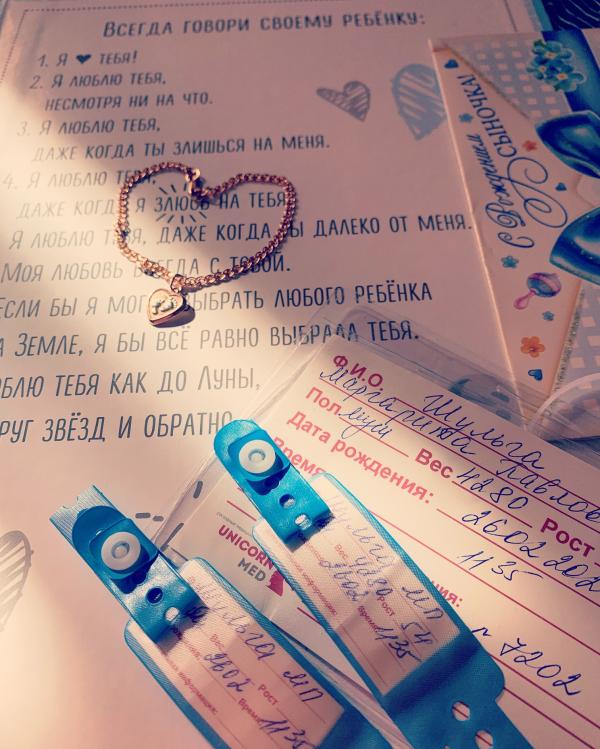 Всегда говори своему ребёнку:
1. Я ❤ тебя!
2. Я люблю тебя,
несмотря ни на что.
3. Я люблю тебя,
даже когда ты злишься на меня.
4. Я люблю тебя,
даже когда я злюсь на тебя
Я люблю тебя, даже когда ты далеко от меня.
Моя любовь всегда с тобой.
Если бы я могла выбрать любого ребёнка
на Земле, я бы всё равно выбрала тебя.
люблю тебя как до Луны,
вокруг звёзд и обратно
С рождением
Сыночка!
Ф.И.О. Шульга
Маргарита Павлов
Пол муж Вес 4280 Рост
Дата рождения: 2602 202
Время 1135
7202
UNICORN
MED
Шульга МП
Вес 4280 Рост 54
2602 Время 1135
Шульга МП
2602 Рост
Время 1135